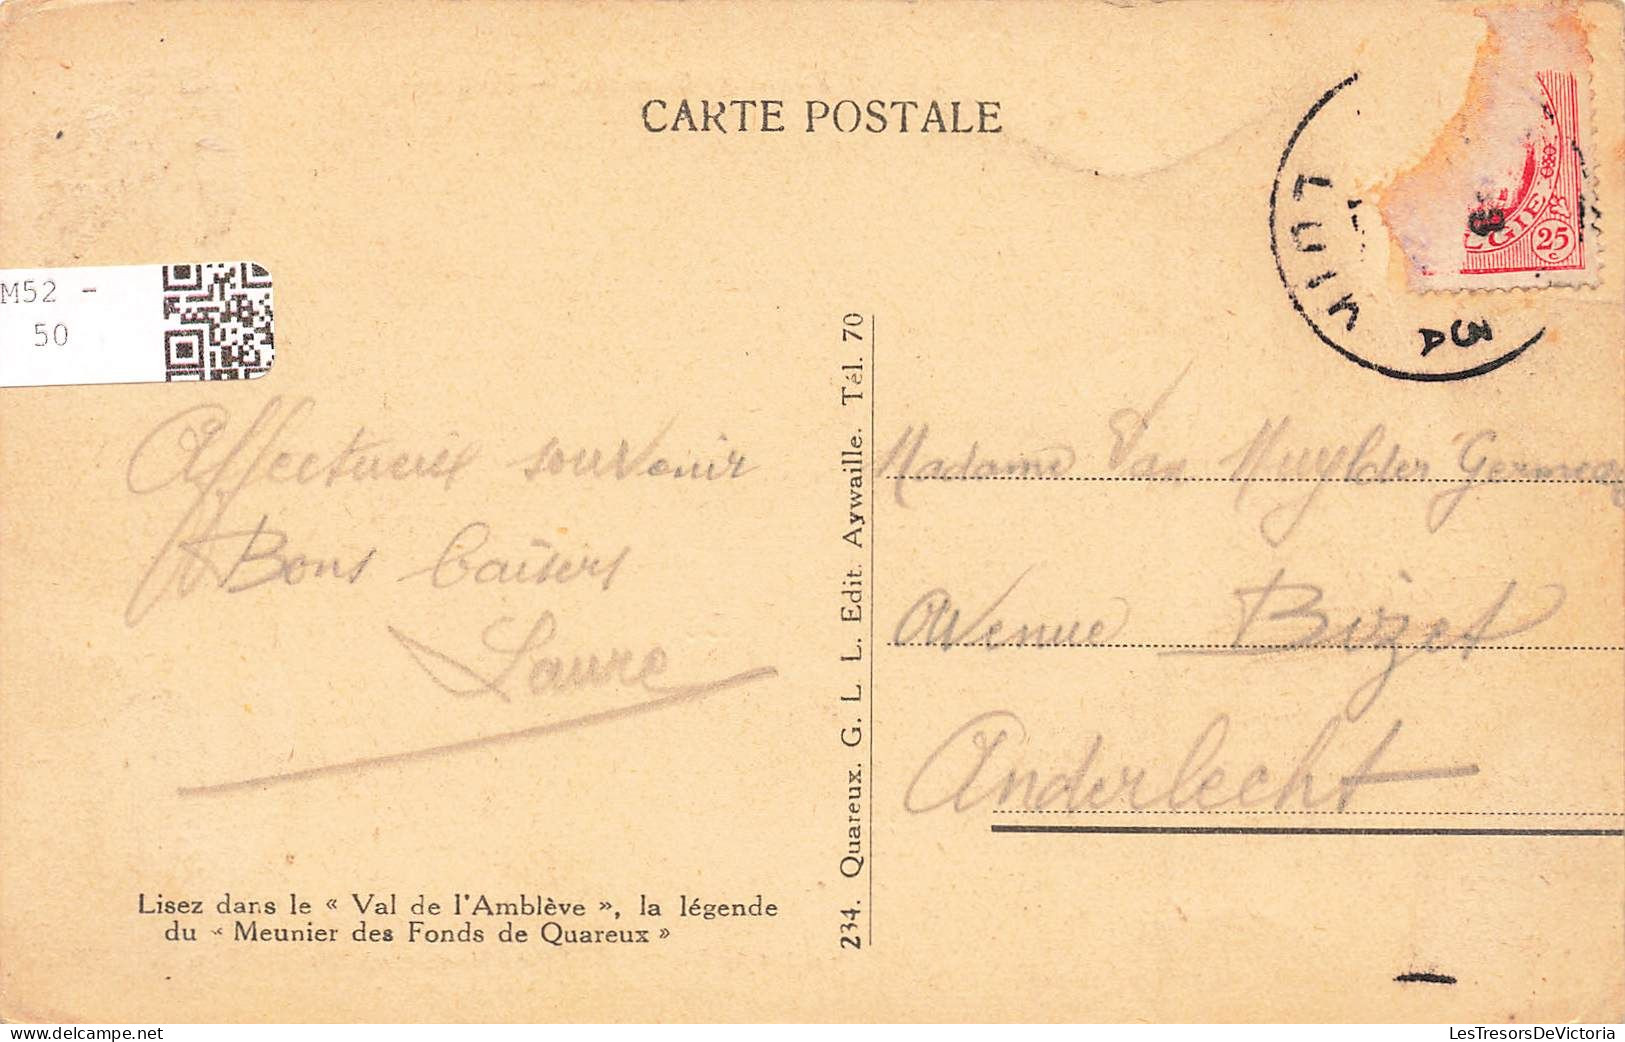 CARTE POSTALE
LGIE
25
c
3A
M52 -
50
Affectueux souvenir
Bons baisers
Laure
Madame Van Muylder Germea
Avenue Bizet
Anderlecht
234. Quareux. G. L. L. Edit. Aywaille. Tél. 70
Lisez dans le « Val de l'Amblève », la légende
du « Meunier des Fonds de Quareux »
LesTresorsDeVictoria